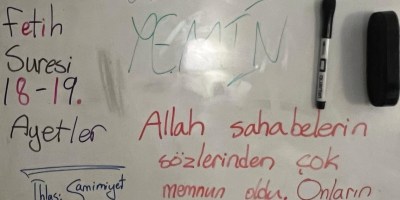 Fetih
Suresi
18-19.
Ayetler
YEMİN
Allah sahabelerin
sözlerinden çok
memnun oldu. Onların
İhlas: Samimiyet